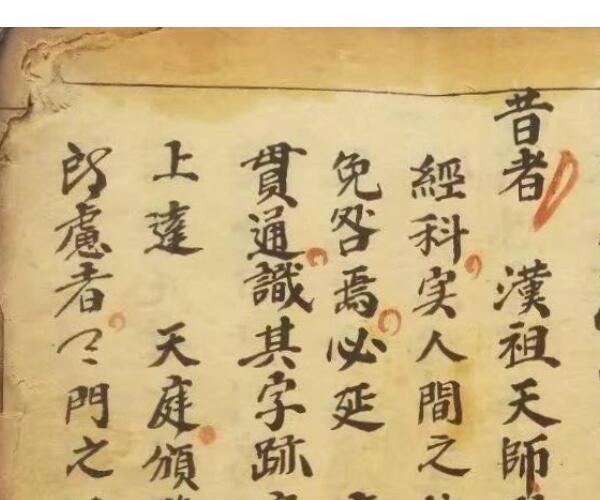 昔者 漢祖天師
經科実人間之
免咎焉必延
貫通識其字跡
上達 天庭頒
慮者 門之